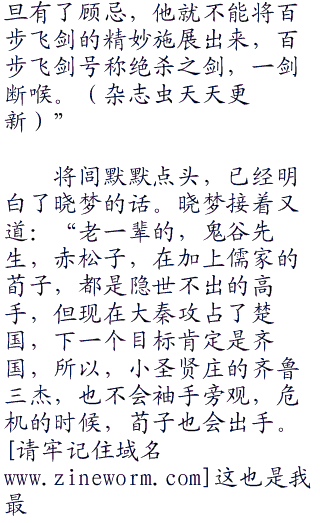 旦有了顾忌，他就不能将百
步飞剑的精妙施展出来，百
步飞剑号称绝杀之剑，一剑
断喉。（杂志虫天天更
新）”
将闾默默点头，已经明
白了晓梦的话。晓梦接着又
道：“老一辈的，鬼谷先
生，赤松子，在加上儒家的
荀子，都是隐世不出的高
手，但现在大秦攻占了楚
国，下一个目标肯定是齐
国，所以，小圣贤庄的齐鲁
三杰，也不会袖手旁观，危
机的时候，荀子也会出手。
[请牢记住域名
www.zineworm.com]这也是我
最